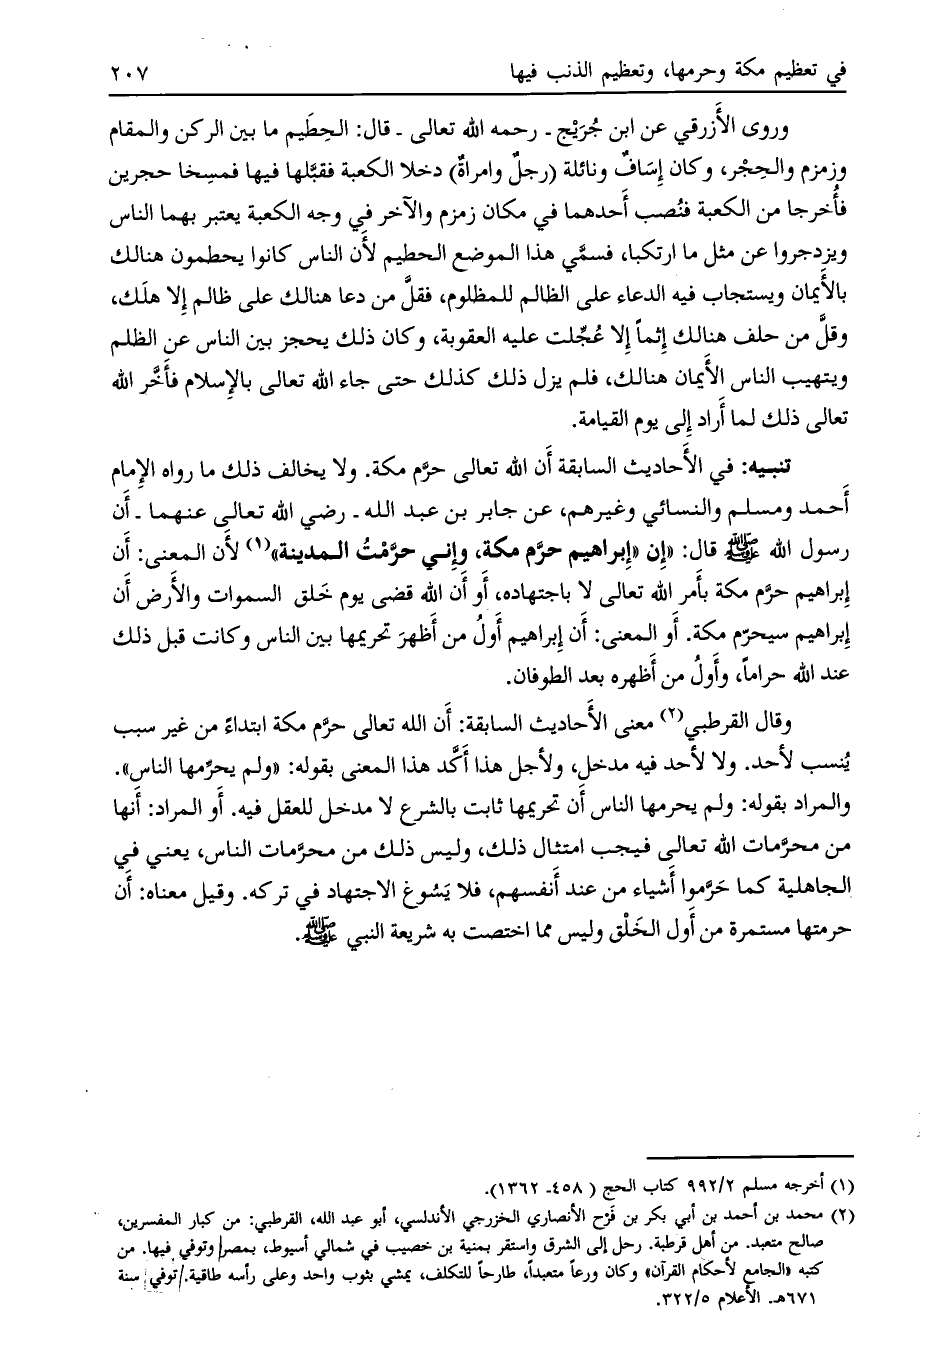 في تعظيم مكة وحرمها، وتعظيم الذنب فيها ٢٠٧
وروى الأَزرقي عن ابن جُرَيْج ـ رحمه الله تعالى ـ قال: الحِطَيم ما بين الركن والمقام
وزمزم والحِجْر، وكان إِسَافٌ ونائلة (رجلٌ وامراةٌ) دخلا الكعبة فقبَّلها فيها فمسِخا حجرين
فأُخرجا من الكعبة فنُصب أَحدهما في مكان زمزم والآخر في وجه الكعبة يعتبر بهما الناس
ويزدجروا عن مثل ما ارتكبا، فسمَّي هذا الموضع الحطيم لأَن الناس كانوا يحطمون هنالك
بالأَيمان ويستجاب فيه الدعاء على الظالم للمظلوم، فقلَّ من دعا هنالك على ظالم إِلا هلَك،
وقلَّ من حلف هنالك إِثماً إِلا عُجِّلت عليه العقوبة، وكان ذلك يحجز بين الناس عن الظلم
ويتهيب الناس الأَيمان هنالك، فلم يزل ذلك كذلك حتى جاء الله تعالى بالإِسلام فأَخَّر الله
تعالى ذلك لما أَراد إِلى يوم القيامة.
تنبيه: في الأَحاديث السابقة أَن الله تعالى حرَّم مكة. ولا يخالف ذلك ما رواه الإِمام
أَحمد ومسلم والنسائي وغيرهم، عن جابر بن عبد الله ـ رضي الله تعالى عنهما ـ أَن
رسول الله ﷺ قال: «إن «إِبراهيم حرَّم مكة، وإِني حرَّمْتُ المدينة»(١) لأَن المعنى: أَن
إِبراهيم حرَّم مكة بأَمر الله تعالى لا باجتهاده، أَو أَن الله قضى يوم خَلق السموات والأَرض أَن
إِبراهيم سيحرّم مكة. أَو المعنى: أَن إِبراهيم أَولُ من أَظهرَ تحريمها بين الناس وكانت قبل ذلك
عند الله حراماً، وأَولُ من أَظهره بعد الطوفان.
وقال القرطبي(٢) معنى الأَحاديث السابقة: أَن الله تعالى حرَّم مكة ابتداءً من غير سبب
يُنسب لأَحد. ولا لأَحد فيه مدخل، ولأجل هذا أَكَّد هذا المعنى بقوله: «ولم يحرِّمها الناس».
والمراد بقوله: ولم يحرمها الناس أَن تحريمها ثابت بالشرع لا مدخل للعقل فيه. أَو المراد: أَنها
من محرَّمات الله تعالى فيجب امتثال ذلك، وليس ذلك من محرَّمات الناس، يعني في
الجاهلية كما حَرَّموا أَشياء من عند أَنفسهم، فلا يَسُوغ الاجتهاد في تركه. وقيل معناه: أَن
حرمتها مستمرة من أَول الخَلْق وليس مما اختصت به شريعة النبي ﷺ.
(١) أخرجه مسلم ٩٩٢/٢ كتاب الحج (٤٥٨ـ ١٣٦٢).
(٢) محمد بن أحمد بن أبي بكر بن فَرْح الأنصاري الخزرجي الأندلسي، أبو عبد الله، القرطبي: من كبار المفسرين،
صالح متعبد. من أهل قرطبة. رحل إلى الشرق واستقر بمنية بن خصيب في شمالي أسيوط، بمصر وتوفي فيها. من
كتبه «الجامع لأحكام القرآن» وكان ورعاً متعبداً، طارحاً للتكلف، يمشي بثوب واحد وعلى رأسه طاقية. توفي سنة
٦٧١هـ. الأعلام ٣٢٢/٥.